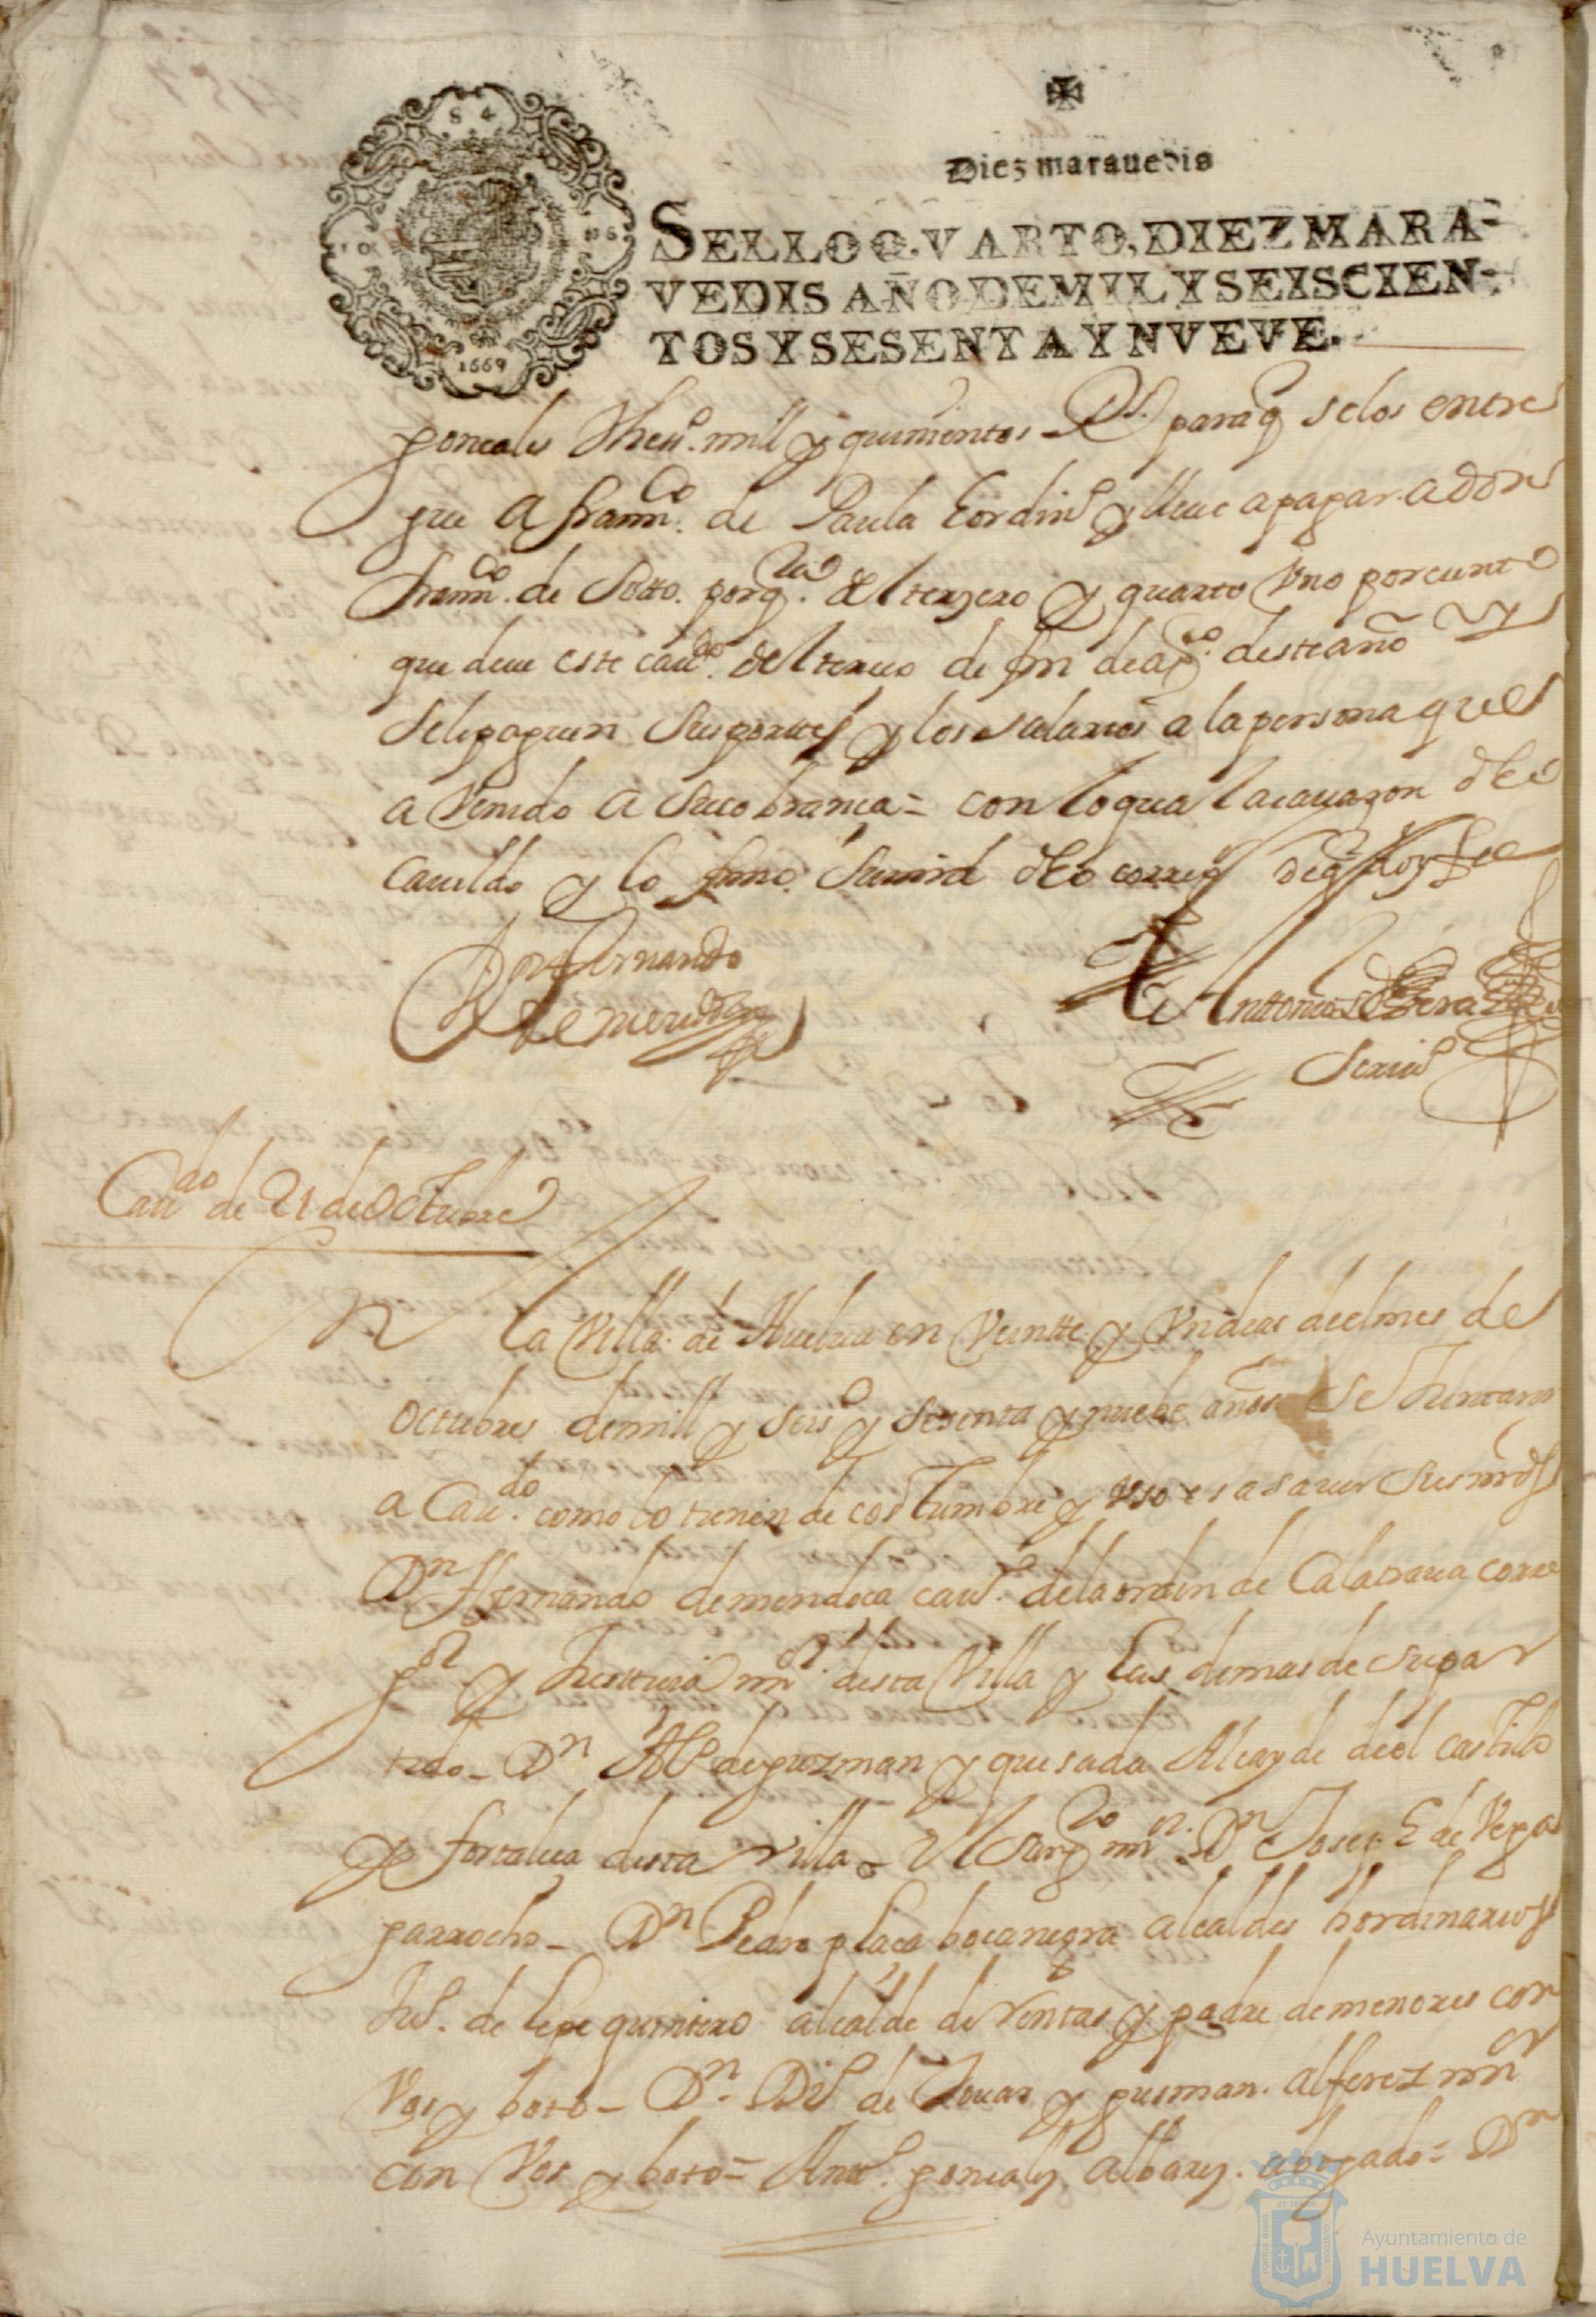 S 4
1669
Diez maravedis
SELLO QVARTO, DIEZ MARA-
VEDIS AÑO DE MIL Y SEISCIEN-
TOS Y SESENTA Y NVEVE.
gonçales thess.º mill y quinientos Rs. para q se los entre
gue a Frann.co de Paula y lleue a pagar a don
Frann.co de Soto. por q.ta del terzero y quarto Uno por ciento
que deue este cau.do del tercio de fin de ag.to deste año y
se le paguen sus portes y los salarios a la persona que
a Venido a su cobranza = con lo qual se acauo este
cauildo y lo firmo su mrd el correg.r de q doy fee
Dn Fernando
de mendoça
Antonio
Scriu.º
Cau.do de 21 de Octubre
En la Villa de Huelua en Veintte y Un dias del mes de
Octubre de mill y seis.º y sesenta y nuebe años se Juntaron
a Cau.do como lo tienen de costumbre y uso es a sauer sus mrds
Dn Fernando de mendoça cau.º de la orden de Calatraua corre
g.or y Justicia m.or desta Villa y las demas de su par
tido - Dn Al.º de guzman y quesada Alcayde del castillo
y fortaleça desta villa - El Sarg.to m.r Dn Josep de Vega
garrocho - Dn Pedro plaça bocanegra alcaldes hordinarios
Ju.º de Lepe quintero alcalde de Rentas y padre de menores con
Vos y boto - Dn. Di.º de Touar y gusman. alferez m.or
con Vos y boto = Ant.º gonçales Albarez. abogado = Dn
Ayuntamiento de
HUELVA